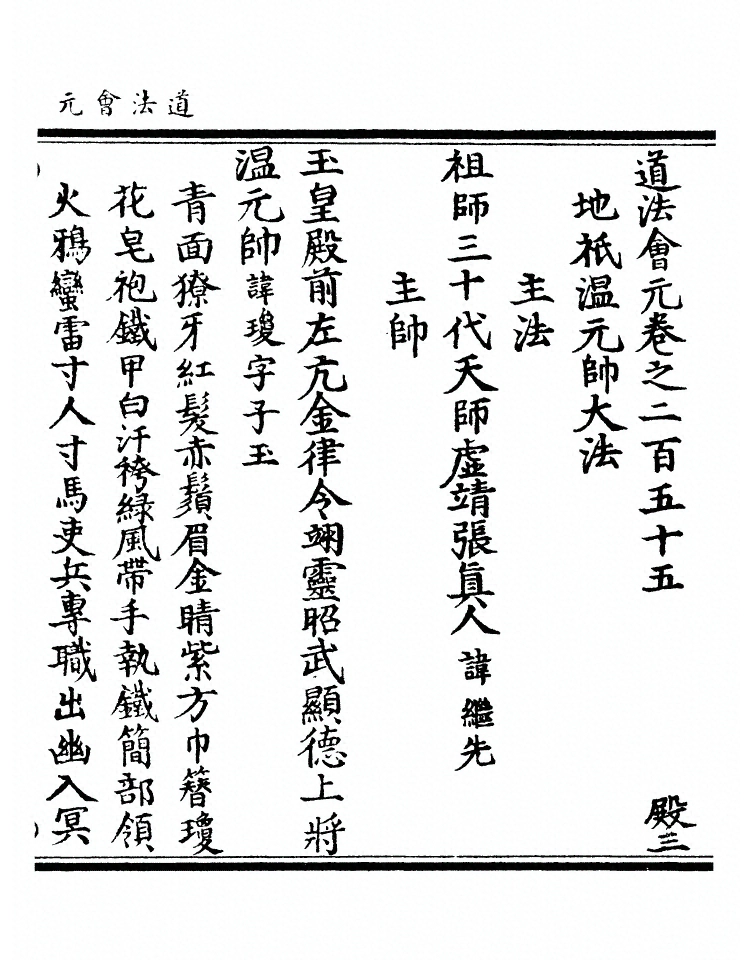 道法會元
道法會元卷之二百五十五 殿三
地祇温元帥大法
主法
祖師三十代天師虛靖張眞人諱繼先
主帥
玉皇殿前左亢金律令翊靈昭武顯德上將
温元帥諱瓊字子玉
青面獠牙紅髮赤鬚眉金睛紫方巾簪瓊
花皂袍鐵甲白汗袴綠風帶手執鐵簡部領
火鴉蠻雷寸人寸馬吏兵專職出幽入冥